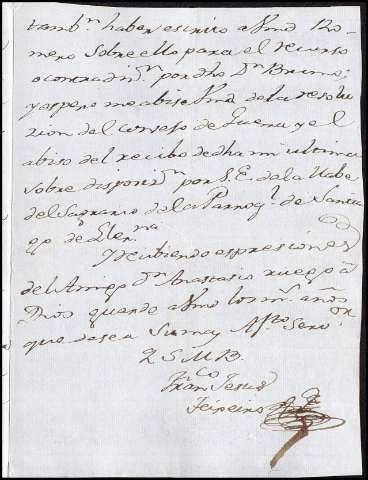 tambⁿ. haber escrito a Vmd Ro-
mero sobre ello para el recurso
o contradⁿ. por dho Dⁿ Bruno;
y espero me abise Vmd de la resolu
cion del consejo de Guerra y el
abiso del recibo de dha mi ultima
sobre disposiⁿ. por S.E. de la llabe
del Sagrario de la Parroqˡ. de Santia
go de
Recibiendo espresiones
del Amigo Dⁿ Anastasio ruego à
Dios guarde a Vmd los mˢ. años
que desea su may. Afᵗᵒ. Servᵒʳ.
Q S M B.
Franᶜᵒ Jesus
Teixeiro